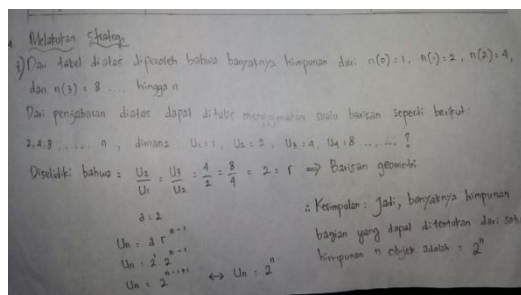 Melakukan strategi
i) Dari tabel diatas diperoleh bahwa banyaknya himpunan dari n(0) = 1, n(1) = 2, n(2) = 4,
dan n(3) = 8 .... hingga n
Dari penjabaran diatas dapat ditulis menggunakan suatu barisan seperti berikut:
2, 4, 8, ....... n , dimana U₁ = 1, U₂ = 2, U₃ = 4, U₄ = 8 ...... ?
Diselidiki bahwa = U₂/U₁ = U₃/U₂ = 4/2 = 8/4 = 2 = r ⇒ Barisan geometri
a = 2
∴ Kesimpulan : Jadi, banyaknya himpunan
bagian yang dapat ditentukan dari satu
himpunan n objek adalah = 2ⁿ
Un = a rⁿ⁻¹
Un = 2¹ 2ⁿ⁻¹
Un = 2ⁿ⁻¹⁺¹ ↔ Un = 2ⁿ